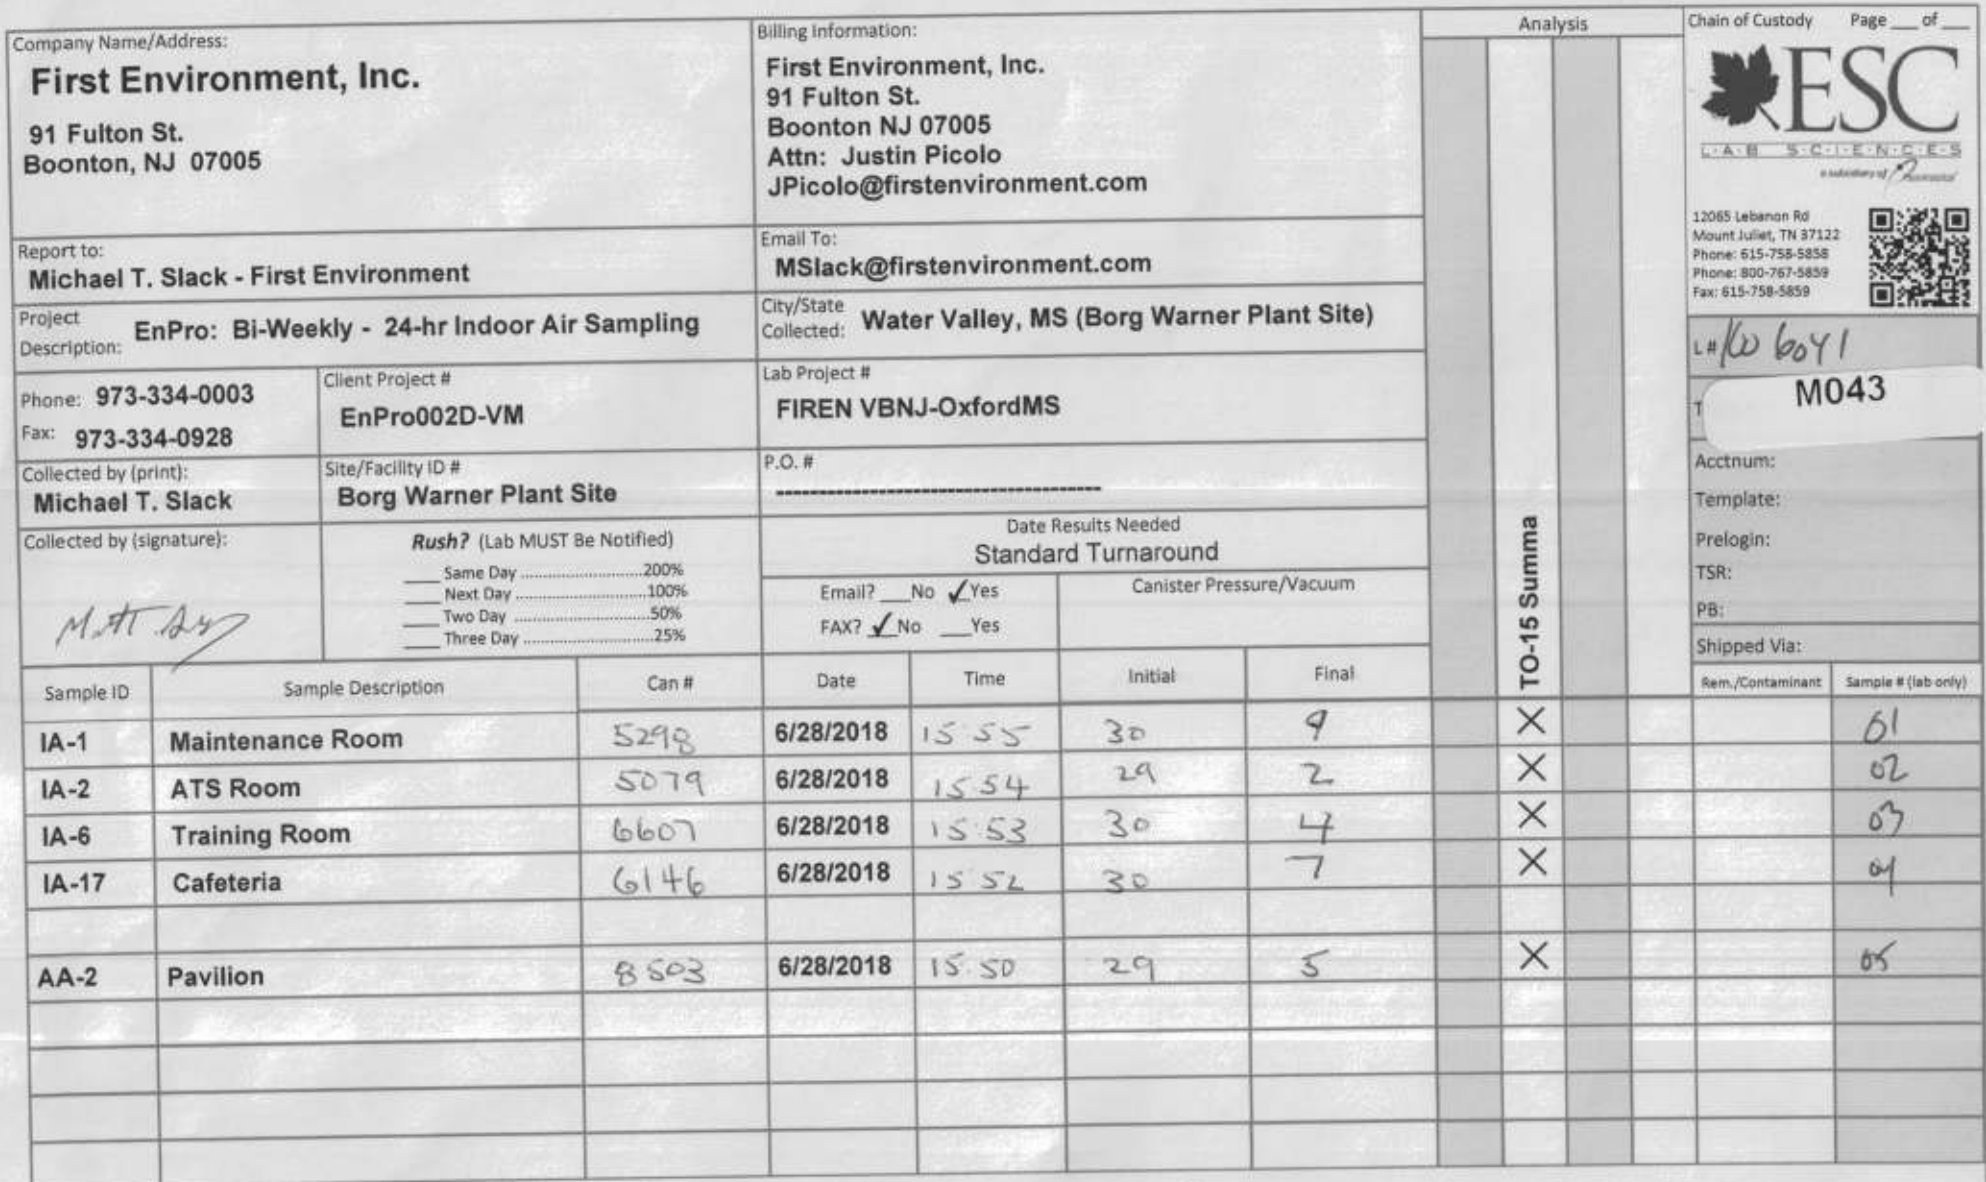 Company Name/Address:
First Environment, Inc.
91 Fulton St.
Boonton, NJ 07005
Billing Information:
First Environment, Inc.
91 Fulton St.
Boonton NJ 07005
Attn: Justin Picolo
JPicolo@firstenvironment.com
Analysis
Chain of Custody Page ___ of ___
ESC
L·A·B S·C·I·E·N·C·E·S
a subsidiary of
12065 Lebanon Rd
Mount Juliet, TN 37122
Phone: 615-758-5858
Phone: 800-767-5859
Fax: 615-758-5859
Report to:
Michael T. Slack - First Environment
Email To:
MSlack@firstenvironment.com
Project Description: EnPro: Bi-Weekly - 24-hr Indoor Air Sampling
City/State Collected: Water Valley, MS (Borg Warner Plant Site)
L#
M043
Phone: 973-334-0003
Fax: 973-334-0928
Client Project #
EnPro002D-VM
Lab Project #
FIREN VBNJ-OxfordMS
Collected by (print):
Michael T. Slack
Site/Facility ID #
Borg Warner Plant Site
P.O. #
--------------------------------------
Acctnum:
Template:
Prelogin:
TSR:
PB:
Shipped Via:
Collected by (signature):
Rush? (Lab MUST Be Notified)
___ Same Day ............................200%
___ Next Day ............................100%
___ Two Day ..............................50%
___ Three Day ............................25%
Date Results Needed
Standard Turnaround
Email? ___No ✓Yes
FAX? ✓No ___Yes
Canister Pressure/Vacuum
TO-15 Summa
Sample ID Sample Description Can # Date Time Initial Final Rem./Contaminant Sample # (lab only)
IA-1 Maintenance Room 5298 6/28/2018 15 55 30 9 X 01
IA-2 ATS Room 5079 6/28/2018 15 54 29 2 X 02
IA-6 Training Room 6607 6/28/2018 15:53 30 4 X 03
IA-17 Cafeteria 6146 6/28/2018 15 52 30 7 X 04
AA-2 Pavilion 8503 6/28/2018 15:50 29 5 X 05